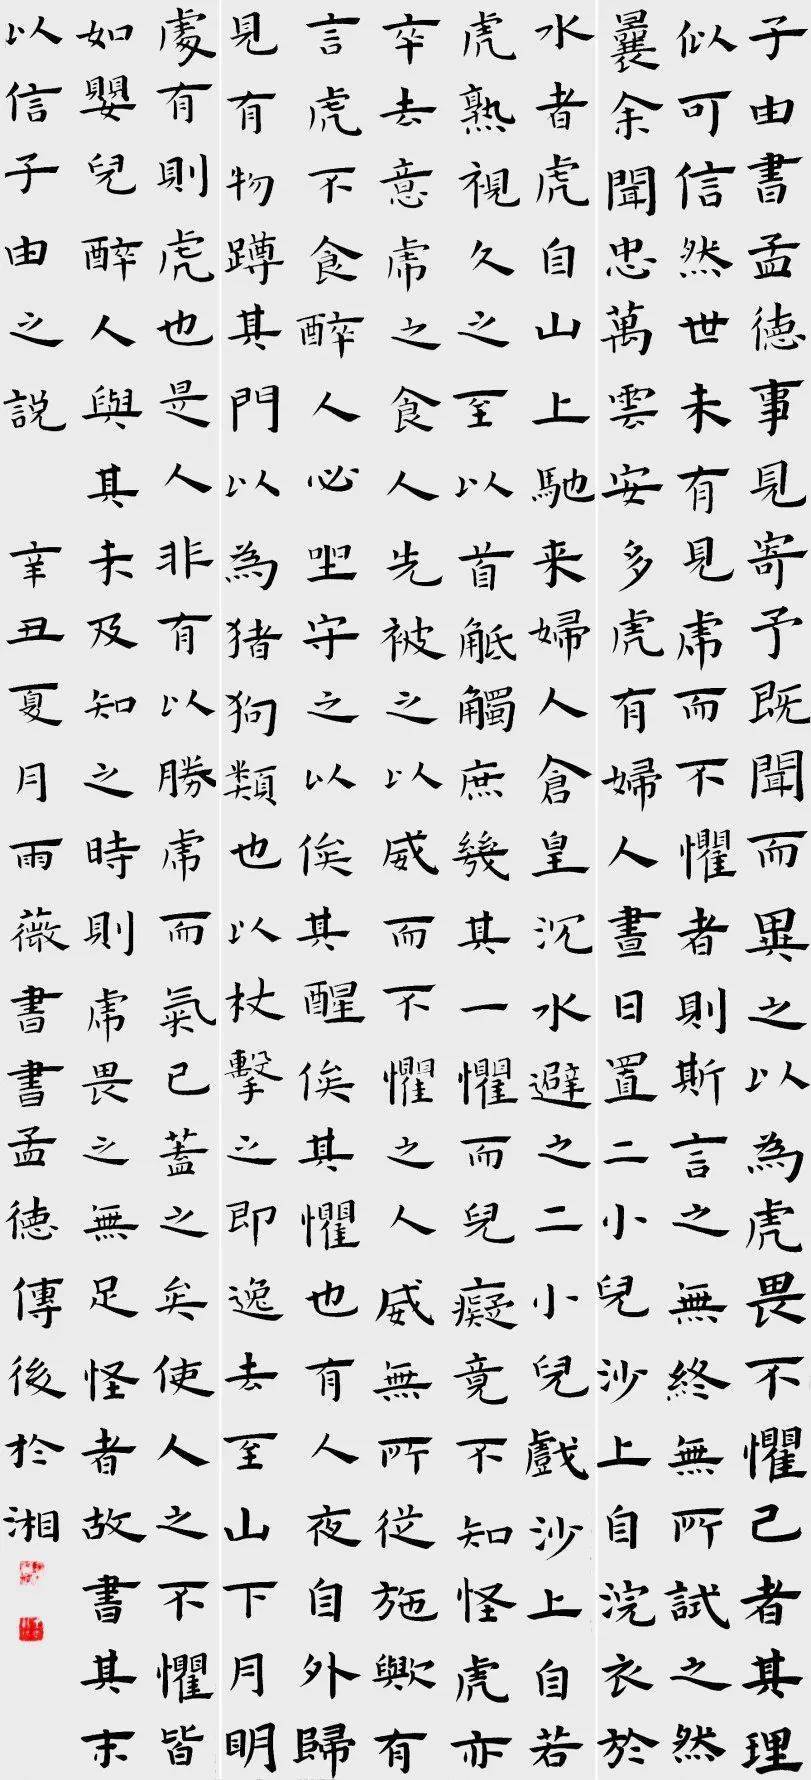 子由書孟德事見寄予既聞而異之以為虎畏不懼己者其理
似可信然世未有見虎而不懼者則斯言之無終無所試之然
曩余聞忠萬雲安多虎有婦人晝日置二小兒沙上自浣衣於
水者虎自山上馳来婦人倉皇沉水避之二小兒戲沙上自若
虎熟視久之至以首觝觸庶幾其一懼而兒癡竟不知怪虎亦
卒去意虎之食人先被之以威而不懼之人威無所從施歟有
言虎不食醉人必坐守之以俟其醒俟其懼也有人夜自外歸
見有物蹲其門以為猪狗類也以杖擊之即逸去至山下月明
處有則虎也是人非有以勝虎而氣已蓋之矣使人之不懼皆
如嬰兒醉人與其未及知之時則虎畏之無足怪者故書其末
以信子由之説 辛丑夏月雨薇書書孟德傳後於湘